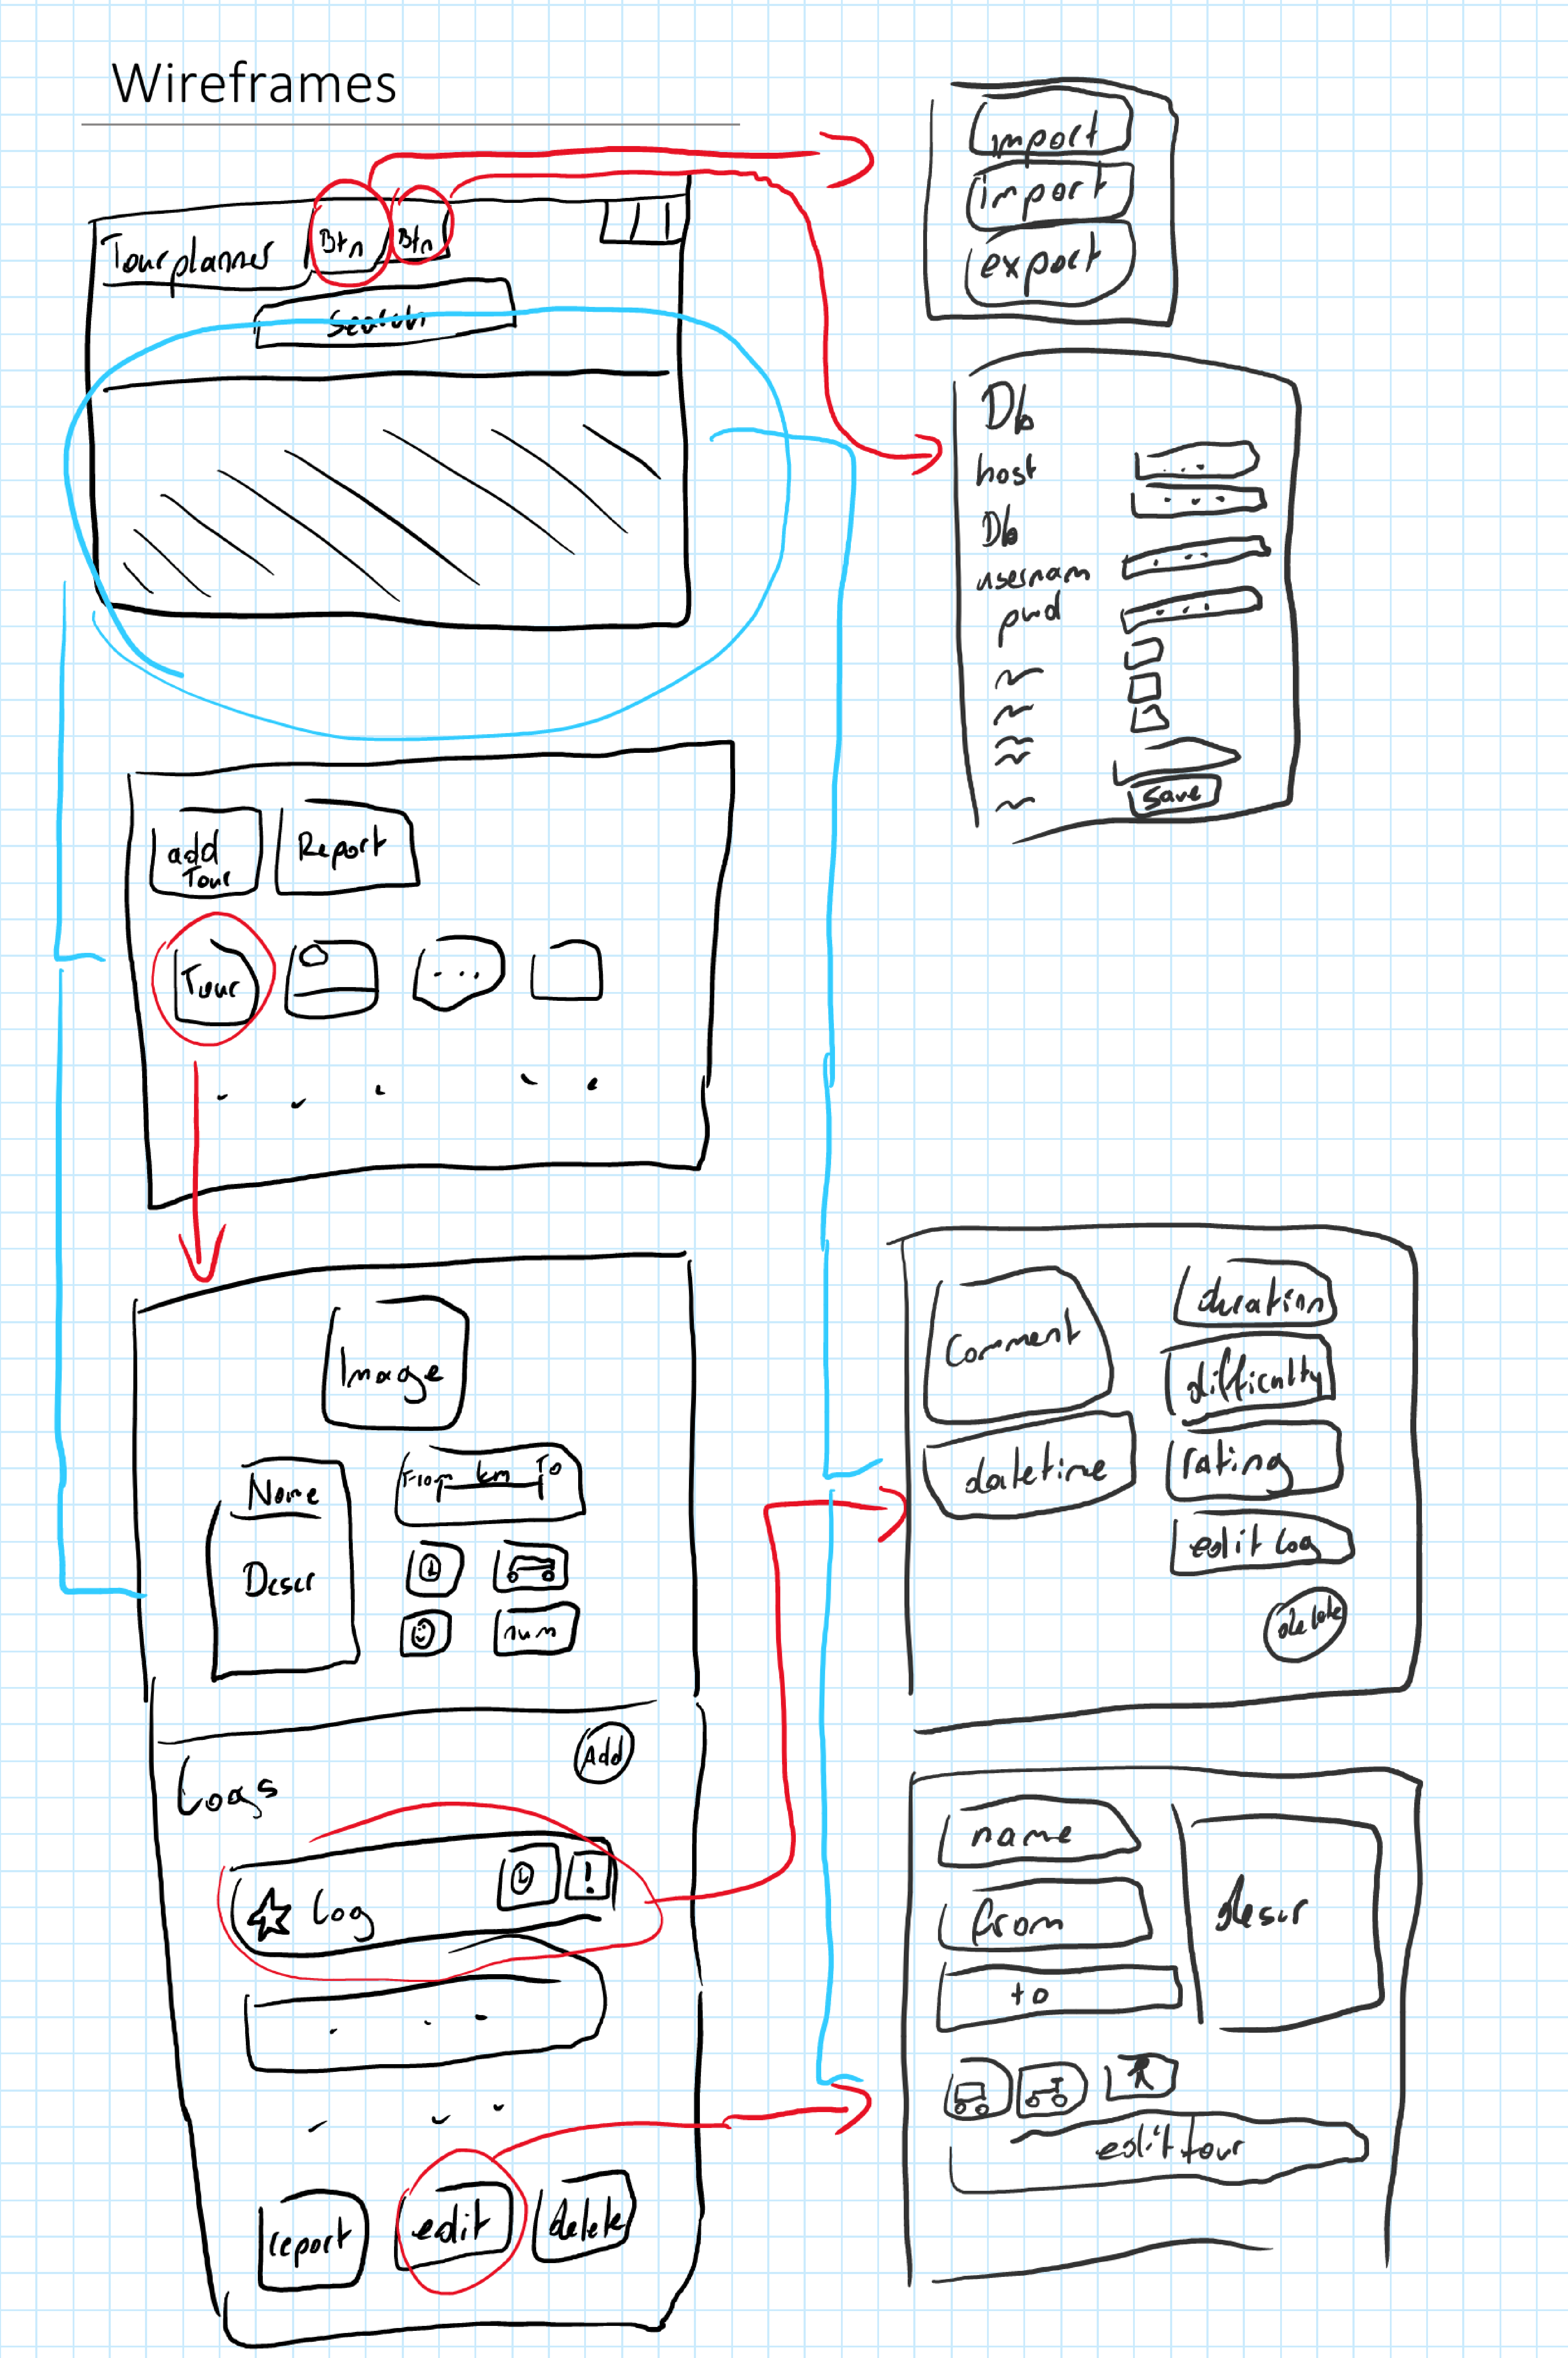 Wireframes
Tourplanner
Btn
Btn
Search
import
import
export
Db
host
Db
usernam
pwd
save
add
Tour
Report
Tour
Image
Name
Descr
From km To
num
Logs
Add
Log
!
report
edit
delete
Comment
datetime
duration
difficulty
rating
edit Log
delete
name
from
to
descr
edit tour